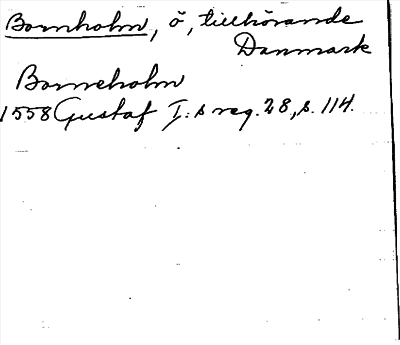 Bornholm, ö, tillhörande
Danmark
Borneholm
1558 Gustaf I:s reg. 28, s. 114.